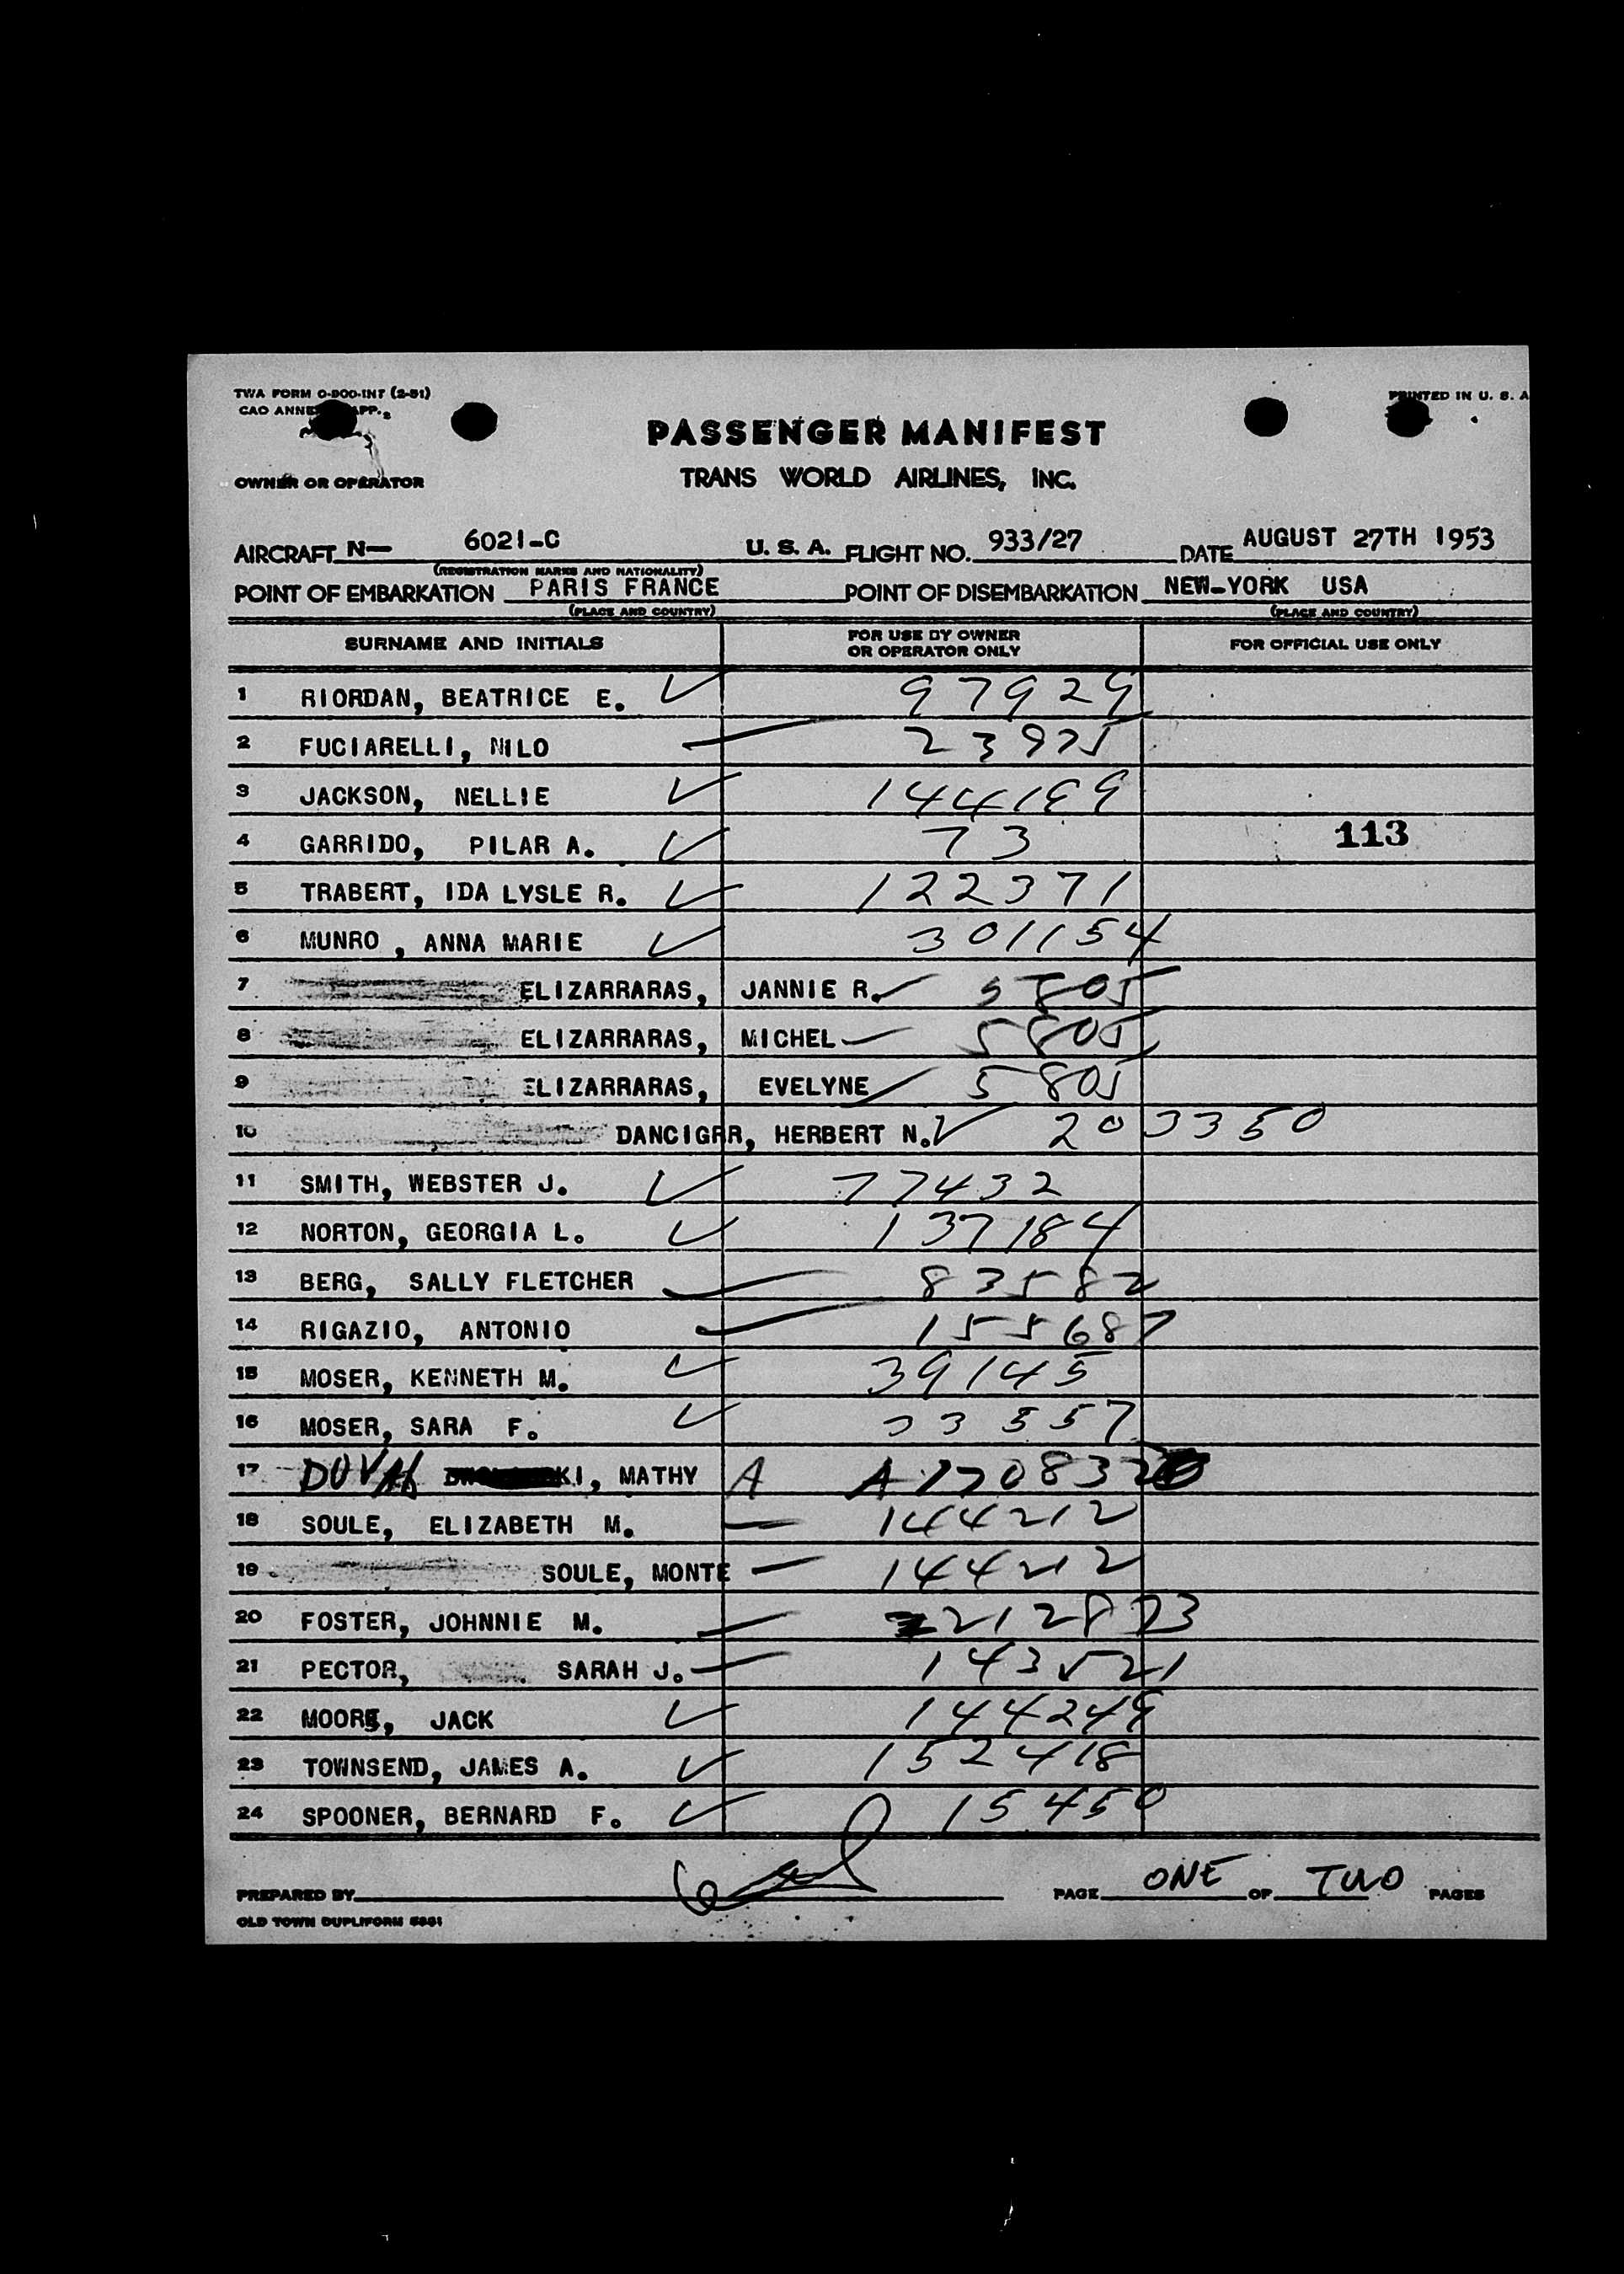 TWA FORM O-900-INT (2-51) PRINTED IN U. S. A
CAO ANNEX APP. 2
PASSENGER MANIFEST
OWNER OR OPERATOR TRANS WORLD AIRLINES, INC.
AIRCRAFT N— 6021-C U. S. A. FLIGHT NO. 933/27 DATE AUGUST 27TH 1953
(REGISTRATION MARKS AND NATIONALITY)
POINT OF EMBARKATION PARIS FRANCE POINT OF DISEMBARKATION NEW-YORK USA
(PLACE AND COUNTRY) (PLACE AND COUNTRY)
SURNAME AND INITIALS FOR USE BY OWNER OR OPERATOR ONLY FOR OFFICIAL USE ONLY
1 RIORDAN, BEATRICE E. 97929
2 FUCIARELLI, NILO 23975
3 JACKSON, NELLIE 144199
4 GARRIDO, PILAR A. 73 113
5 TRABERT, IDA LYSLE R. 122371
6 MUNRO , ANNA MARIE 301154
7 ELIZARRARAS, JANNIE R. 5805
8 ELIZARRARAS, MICHEL 5805
9 ELIZARRARAS, EVELYNE 5805
10 DANCIGRR, HERBERT N. 203350
11 SMITH, WEBSTER J. 77432
12 NORTON, GEORGIA L. 137184
13 BERG, SALLY FLETCHER 83582
14 RIGAZIO, ANTONIO 155687
15 MOSER, KENNETH M. 39145
16 MOSER, SARA F. 33557
17 DUVAL MATHY A
18 SOULE, ELIZABETH M. 144212
19 SOULE, MONTE 144212
20 FOSTER, JOHNNIE M. 212873
21 PECTOR, SARAH J. 143521
22 MOORE, JACK 144249
23 TOWNSEND, JAMES A. 152418
24 SPOONER, BERNARD F. 15450
PREPARED BY PAGE ONE OF TWO PAGES
OLD TOWN DUPLIFORM